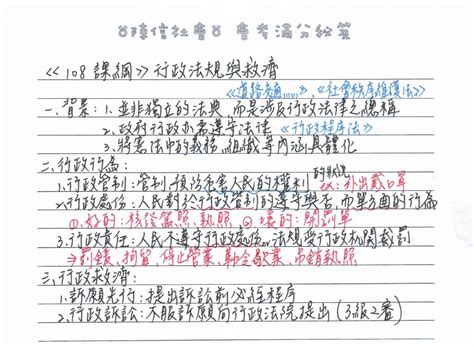 陳信社會 會考滿分秘笈
《108課綱》行政法規與救濟
《道路交通……》、《社會秩序維護法》
一、背景:1. 並非獨立的法典,而是涉及行政法律之總稱
2. 政府行政亦需遵守法律 《行政程序法》
3. 將憲法中的義務、組織等內涵具體化
二、行政行為: 的狀況
1. 行政管制:管制、預防危害人民的權利 ex:外出戴口罩
2. 行政處份:人民對於行政管制的遵守與否,而單方面的行為
①好的:核發篇照、執照 ②壞的:開罰單
3. 行政責任:人民不遵守行政處份、法規受行政机關裁罰
⇒罰鍰、拘留、停止營業、勒令歇業、吊銷執照
三、行政救濟:
1. 訴願先行:提出訴訟前必經程序
2. 行政訴訟:不服訴願向行政法院提出(3級2審)